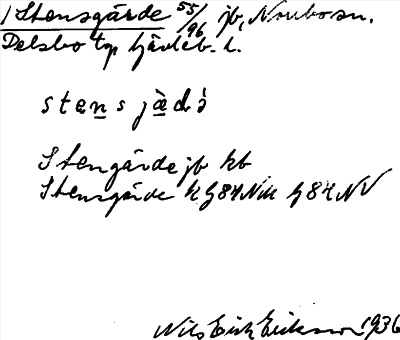 1 Stensgärde 55/96 jb, Norrbosn.
Delsbo tg
stens jàdə̀
Stengärde jb kb
Stensgärde k G84NV
Nils Erik Eriksson 1936